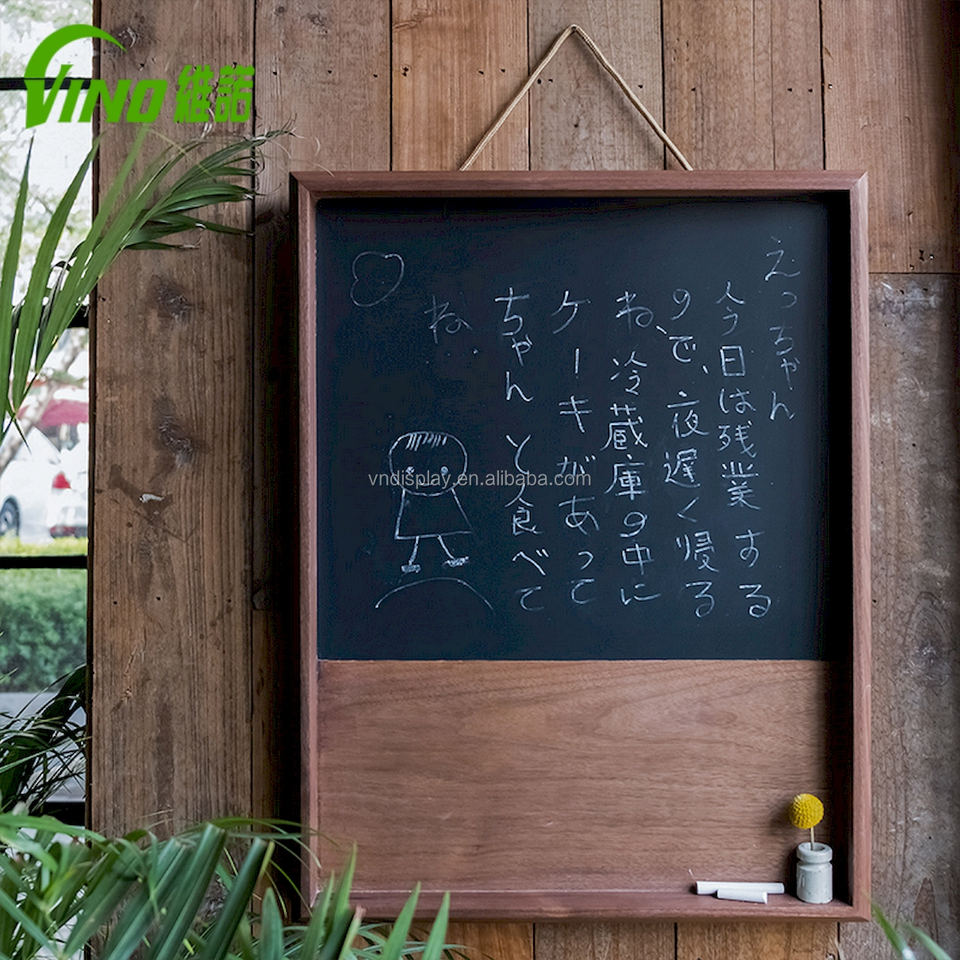 VINO 維諾
えっちゃん
今日は残業する
ので、夜遅く寝る
ね、冷蔵庫の中に
ケーキがあって
ちゃんと食べて
ね
vndisplay.en.alibaba.com